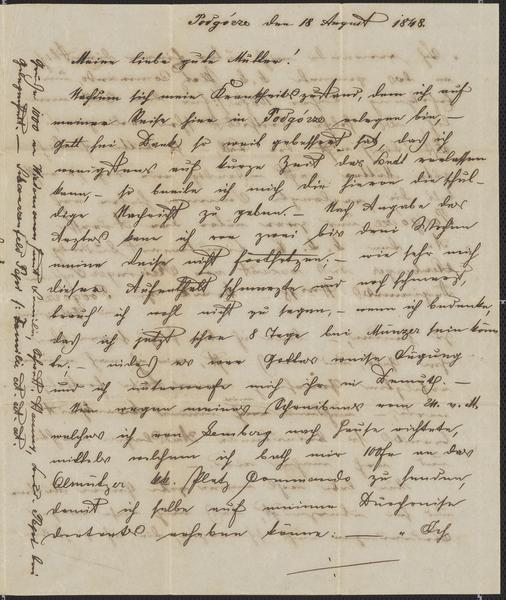 Podgórze den 18 August 1848.
Meine liebe gute Mutter!
Nachdem sich mein Krankheitszustand, dem ich auf
meiner Reise hier in Podgórze erlegen bin, —
Gott sei Dank, so weit gebessert hat, daß ich
wenigstens auf kurze Zeit das Bett verlassen
kann, — so beeile ich mich dir hievon die schul-
dige Nachricht zu geben. — Nach Angabe des
Arztes kann ich vor zwei bis drei Wochen
meine Reise nicht fortsetzen; — wie sehr mich
dieser Aufenthalt schmerzte und noch schmerzt,
brauch' ich wohl nicht zu sagen, — wenn ich bedenke,
daß ich jetzt schon 8 Tage bei sein könn-
te, — indeß es war Gottes weise Fügung
und ich unterwerfe mich ihr in Demuth. —
Nun wegen meines Schreibens vom 24. v. M.
welches ich von Lemberg nach Hause richtete,
mittels welchem ich bath mir 100 fr an das
Olmützer kk. Platz Commando zu senden,
damit ich selbe auf meiner Durchreise
dortorts erheben könne: — " Ich
Grüße 1000 an
Familie et. et. et.